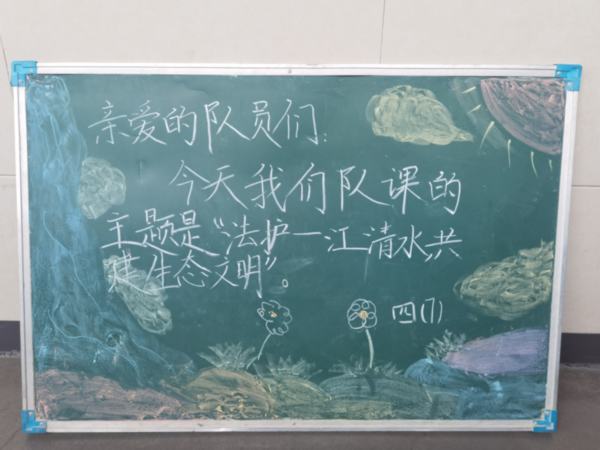 亲爱的队员们：
今天我们队课的
主题是“法护一江清水,共
建生态文明”。
四(1)